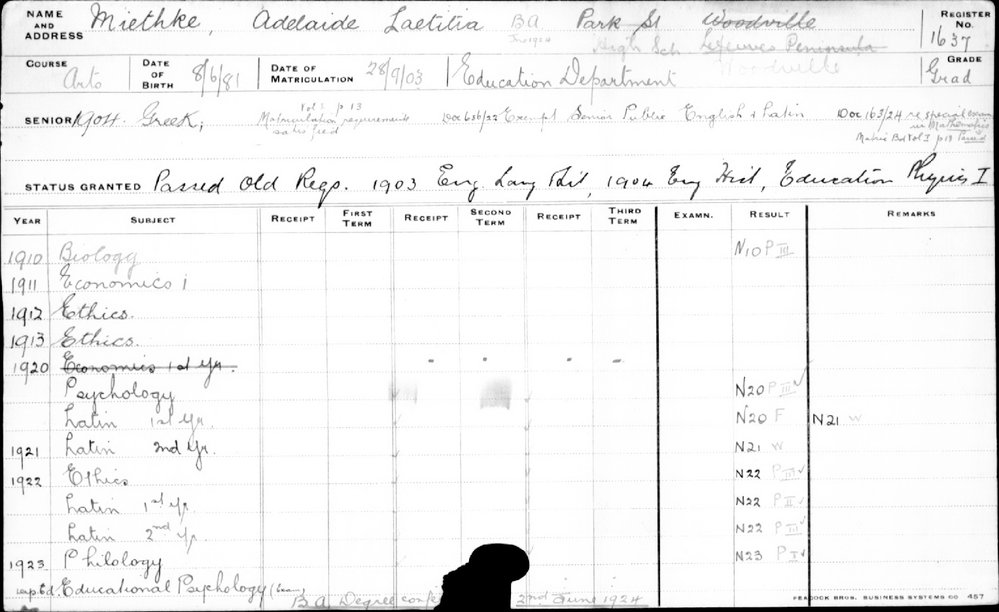 NAME AND ADDRESS Miethke, Adelaide Laetitia BA Park St Woodville REGISTER No. 1637
June 1924 High Sch Lefevres Peninsula
Woodville
COURSE Arts DATE OF BIRTH 8/6/81 DATE OF MATRICULATION 28/9/03 Education Department GRADE Grad
SENIOR 1904. Greek; Vol I p 13 Matriculation requirements satisfied Doc 656/22 Exempt Senior Public English & Latin Doc 163/24 re special exam in Mathematics
Matric Bk Vol I p 13 Passed
STATUS GRANTED Passed Old Regs. 1903 Eng. Lang & Lit, 1904 Eng Hist, Education Physics I
YEAR SUBJECT RECEIPT FIRST TERM RECEIPT SECOND TERM RECEIPT THIRD TERM EXAMN. RESULT REMARKS
1910 Biology N10 P III
1911 Economics 1
1912 Ethics.
1913 Ethics.
1920 Economics 1st Yr.
Psychology N20 P III ✓
Latin 1st Yr. N20 F N21 W
1921 Latin 2nd Yr. N21 W
1922 Ethics N22 P III ✓
Latin 1st Yr. N22 P II ✓
Latin 2nd Yr. N22 P III ✓
1923 Philology N23 P I ✓
Educational Psychology (Exam)
B.A. Degree conf 2nd June 1924
PEACOCK BROS. BUSINESS SYSTEMS CO 457